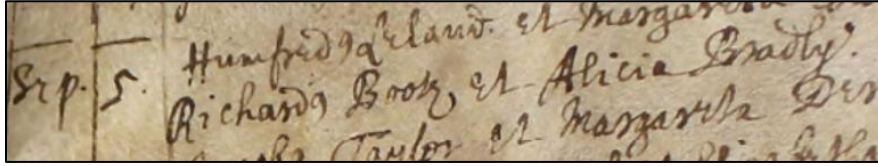 Sep. 5. Humfredꝯ Leland. et Margareta
Richardꝯ Brok, et Alicia Bradly.
Taylor et Margareta Der